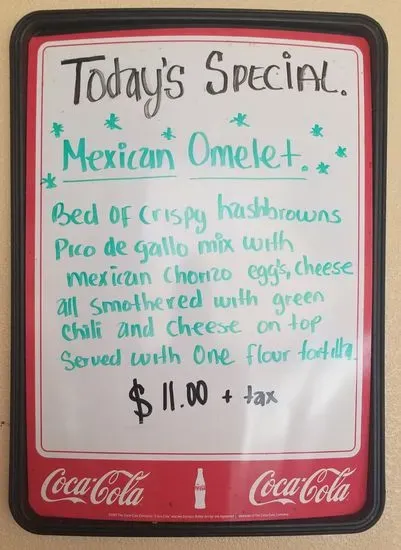 Today's Special.
Mexican Omelet.
Bed of crispy hashbrowns
Pico de gallo mix with
mexican chorizo egg's, cheese
all smothered with green
chili and cheese on top
Served with One flour tortilla
$11.00 + tax
Coca-Cola Coca-Cola